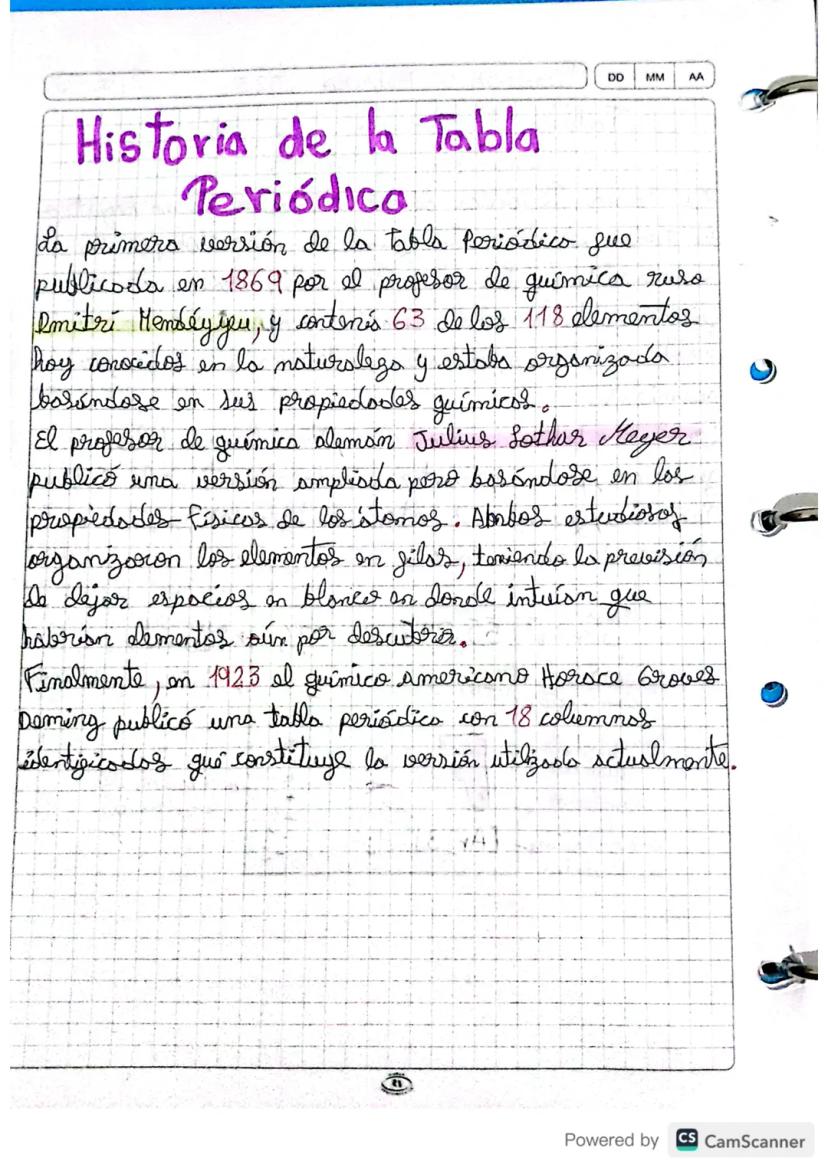 DD MM AA
Historia de la Tabla
Periódica
La primera versión de la tabla Periódica fue
publicada en 1869 por el profesor de química ruso
Dmitri Mendéyyeu, y contenía 63 de los 118 elementos
hoy conocidos en la naturaleza y estaba organizada
basándose en sus propiedades químicas.
El profesor de química alemán Julius Lothar Meyer
publicó una versión ampliada pero basándose en las
propiedades físicas de los átomos. Ambos estudiosos
organizaron los elementos en filas, teniendo la previsión
de dejar espacios en blanco en donde intuían que
habrían elementos aún por descubrir.
Finalmente, en 1923 el químico americano Horace Groves
Deming publicó una tabla periódica con 18 columnas
identificadas que constituye la versión utilizada actualmente.
Powered by CS CamScanner